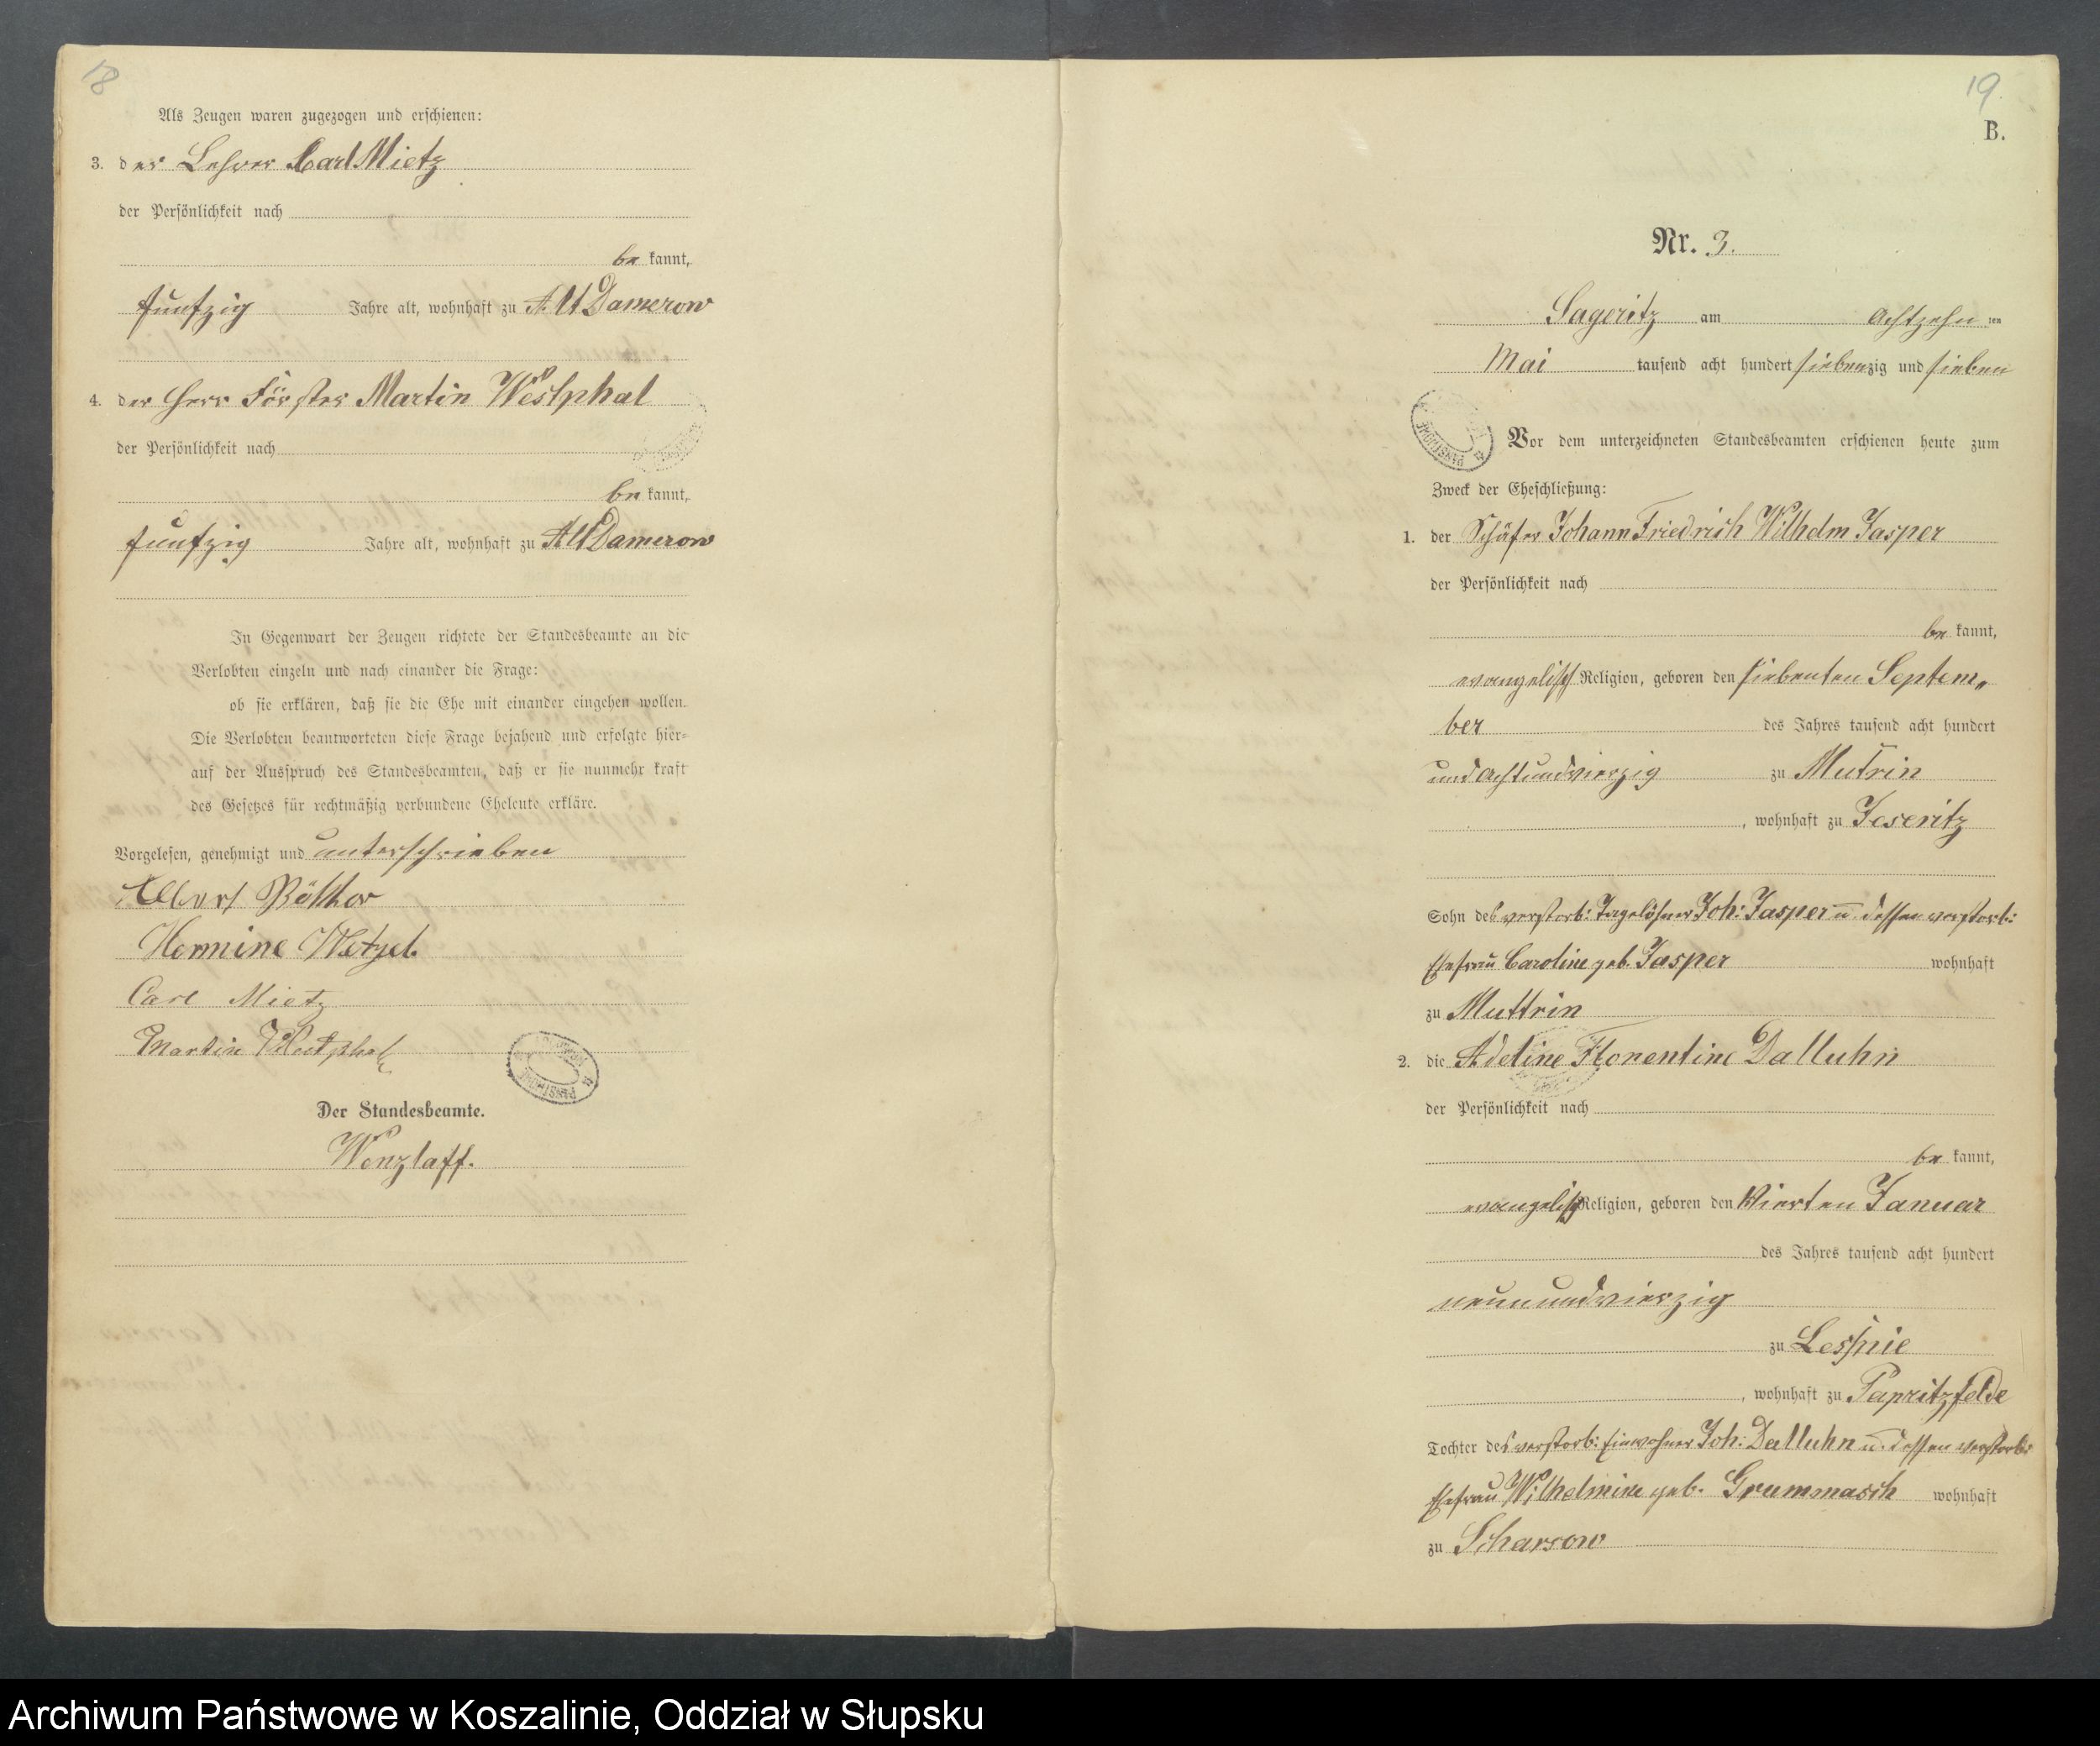 18
Als Zeugen waren zugezogen und erschienen:
3. der Lehrer Carl Mietz
der Persönlichkeit nach
be kannt,
funfzig Jahre alt, wohnhaft zu Alt Damerow
4. der Herr Förster Martin Westphal
der Persönlichkeit nach
be kannt,
funfzig Jahre alt, wohnhaft zu Alt Damerow
In Gegenwart der Zeugen richtete der Standesbeamte an die
Verlobten einzeln und nach einander die Frage:
ob sie erklären, daß sie die Ehe mit einander eingehen wollen.
Die Verlobten beantworteten diese Frage bejahend und erfolgte hier-
auf der Ausspruch des Standesbeamten, daß er sie nunmehr kraft
des Gesetzes für rechtmäßig verbundene Eheleute erkläre.
Vorgelesen, genehmigt und unterschrieben
Albert
Hermine Wetzel
Carl Mietz
Martin Westphal
Der Standesbeamte.
Wenzlaff.
19.
B.
Nr. 3.
Sageritz am achtzehn ten
Mai tausend acht hundert siebenzig und sieben
Vor dem unterzeichneten Standesbeamten erschienen heute zum
Zweck der Eheschließung:
1. der Schäfer Johann Friedrich Wilhelm Jasper
der Persönlichkeit nach
be kannt,
evangelisch Religion, geboren den siebenten Septem-
ber des Jahres tausend acht hundert
und achtundvierzig zu Mutrin
, wohnhaft zu Jeseritz
Sohn des verstorb: Tagelöhner Joh: Jasper u. dessen verstorb:
Ehefrau Caroline geb. Jasper wohnhaft
zu Muttrin
2. die Adeline Florentine Dalluhn
der Persönlichkeit nach
be kannt,
evangelisch Religion, geboren den Vierten Januar
des Jahres tausend acht hundert
neunundvierzig
zu Leschnie
, wohnhaft zu Papritzfelde
Tochter des verstorb: Einwohner Joh: Dalluhn u. dessen verstorb:
Ehefrau Wilhelmine geb. Grummasch wohnhaft
zu Scharsow
Archiwum Państwowe w Koszalinie, Oddział w Słupsku